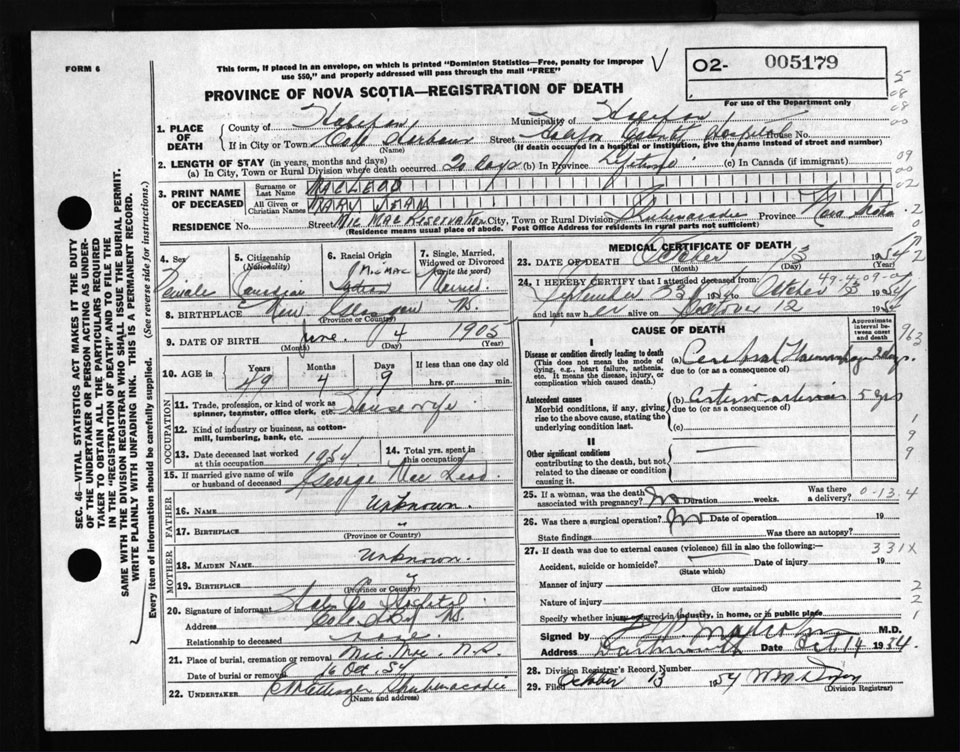 FORM 6
This form, if placed in an envelope, on which is printed "Dominion Statistics—Free, penalty for improper
use $50," and properly addressed will pass through the mail "FREE"
02- 005179
For use of the Department only
PROVINCE OF NOVA SCOTIA—REGISTRATION OF DEATH
1. PLACE OF DEATH
County of Halifax Municipality of Halifax
If in City or Town Cole Harbour Street Halifax County Hospital House No.
(Name) (If death occurred in a hospital or institution, give the name instead of street and number)
2. LENGTH OF STAY (in years, months and days)
(a) In City, Town or Rural Division where death occurred 20 days (b) In Province Lifetime (c) In Canada (if immigrant)
3. PRINT NAME OF DECEASED
Surname or Last Name MACLEOD
All Given or Christian Names MARY JEAN
RESIDENCE No. Street Mic Mac Reservation City, Town or Rural Division Shubenacadie Province Nova Scotia
(Residence means usual place of abode. Post Office Address for residents in rural parts not sufficient)
4. Sex Female
5. Citizenship (Nationality) Canadian
6. Racial Origin Mic Mac Indian
7. Single, Married, Widowed or Divorced (write the word) Married.
8. BIRTHPLACE New Glasgow NS.
(Province or Country)
9. DATE OF BIRTH June 4 1905
(Month) (Day) (Year)
10. AGE in Years 49 Months 4 Days 9 If less than one day old
hrs. or min.
OCCUPATION
11. Trade, profession, or kind of work as spinner, teamster, office clerk, etc. Housewife
12. Kind of industry or business, as cotton-mill, lumbering, bank, etc.
13. Date deceased last worked at this occupation 1954
14. Total yrs. spent in this occupation
15. If married give name of wife or husband of deceased George Mac Leod
FATHER
16. NAME Unknown.
17. BIRTHPLACE "
(Province or Country)
MOTHER
18. MAIDEN NAME Unknown.
19. BIRTHPLACE "
(Province or Country)
20. Signature of informant Hospital
Address Cole NS.
Relationship to deceased none.
21. Place of burial, cremation or removal Mic Mac, N.S.
Date of burial or removal 16 Oct. 54
22. UNDERTAKER Shubenacadie
(Name and address)
MEDICAL CERTIFICATE OF DEATH
23. DATE OF DEATH October 13 1954
(Month) (Day) (Year)
24. I HEREBY CERTIFY that I attended deceased from
September 23 1954 to October 13 1954
and last saw her alive on October 12 1954
CAUSE OF DEATH
Approximate interval between onset and death
I
Disease or condition directly leading to death
(This does not mean the mode of dying, e.g., heart failure, asthenia, etc. It means the disease, injury, or complication which caused death.)
(a) Cerebral Haemorrhage 2 days
due to (or as a consequence of)
Antecedent causes
Morbid conditions, if any, giving rise to the above cause, stating the underlying condition last.
(b) 5 yrs
due to (or as a consequence of)
(c)
II
Other significant conditions
contributing to the death, but not related to the disease or condition causing it.
25. If a woman, was the death associated with pregnancy? No Duration weeks. Was there a delivery? 0-13.4
26. Was there a surgical operation? No Date of operation 19
State findings Was there an autopsy?
27. If death was due to external causes (violence) fill in also the following:— 331X
Accident, suicide or homicide? Date of injury 19
(State which)
Manner of injury
(How sustained)
Nature of injury
Specify whether injury occurred in industry, in home, or in public place
Signed by Malcolm M.D.
Address Dartmouth Date Oct. 14 1954.
28. Division Registrar's Record Number
29. Filed October 13 1954
(Division Registrar)
SEC. 46—VITAL STATISTICS ACT MAKES IT THE DUTY
OF THE UNDERTAKER OR PERSON ACTING AS UNDER-
TAKER TO OBTAIN ALL THE PARTICULARS REQUIRED
IN THE "REGISTRATION OF DEATH" AND TO FILE THE
SAME WITH THE DIVISION REGISTRAR WHO SHALL ISSUE THE BURIAL PERMIT.
WRITE PLAINLY WITH UNFADING INK. THIS IS A PERMANENT RECORD.
Every item of information should be carefully supplied. (See reverse side for instructions.)